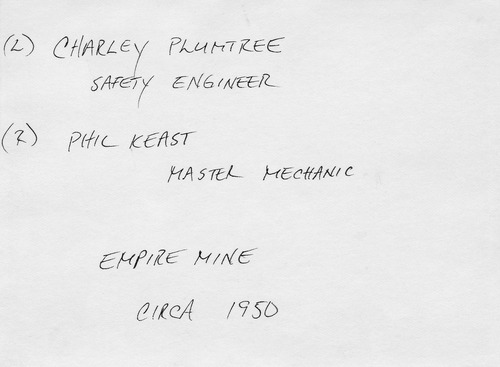 (L) CHARLEY PLUMTREE
SAFETY ENGINEER
(R) PHIL KEAST
MASTER MECHANIC
EMPIRE MINE
CIRCA 1950